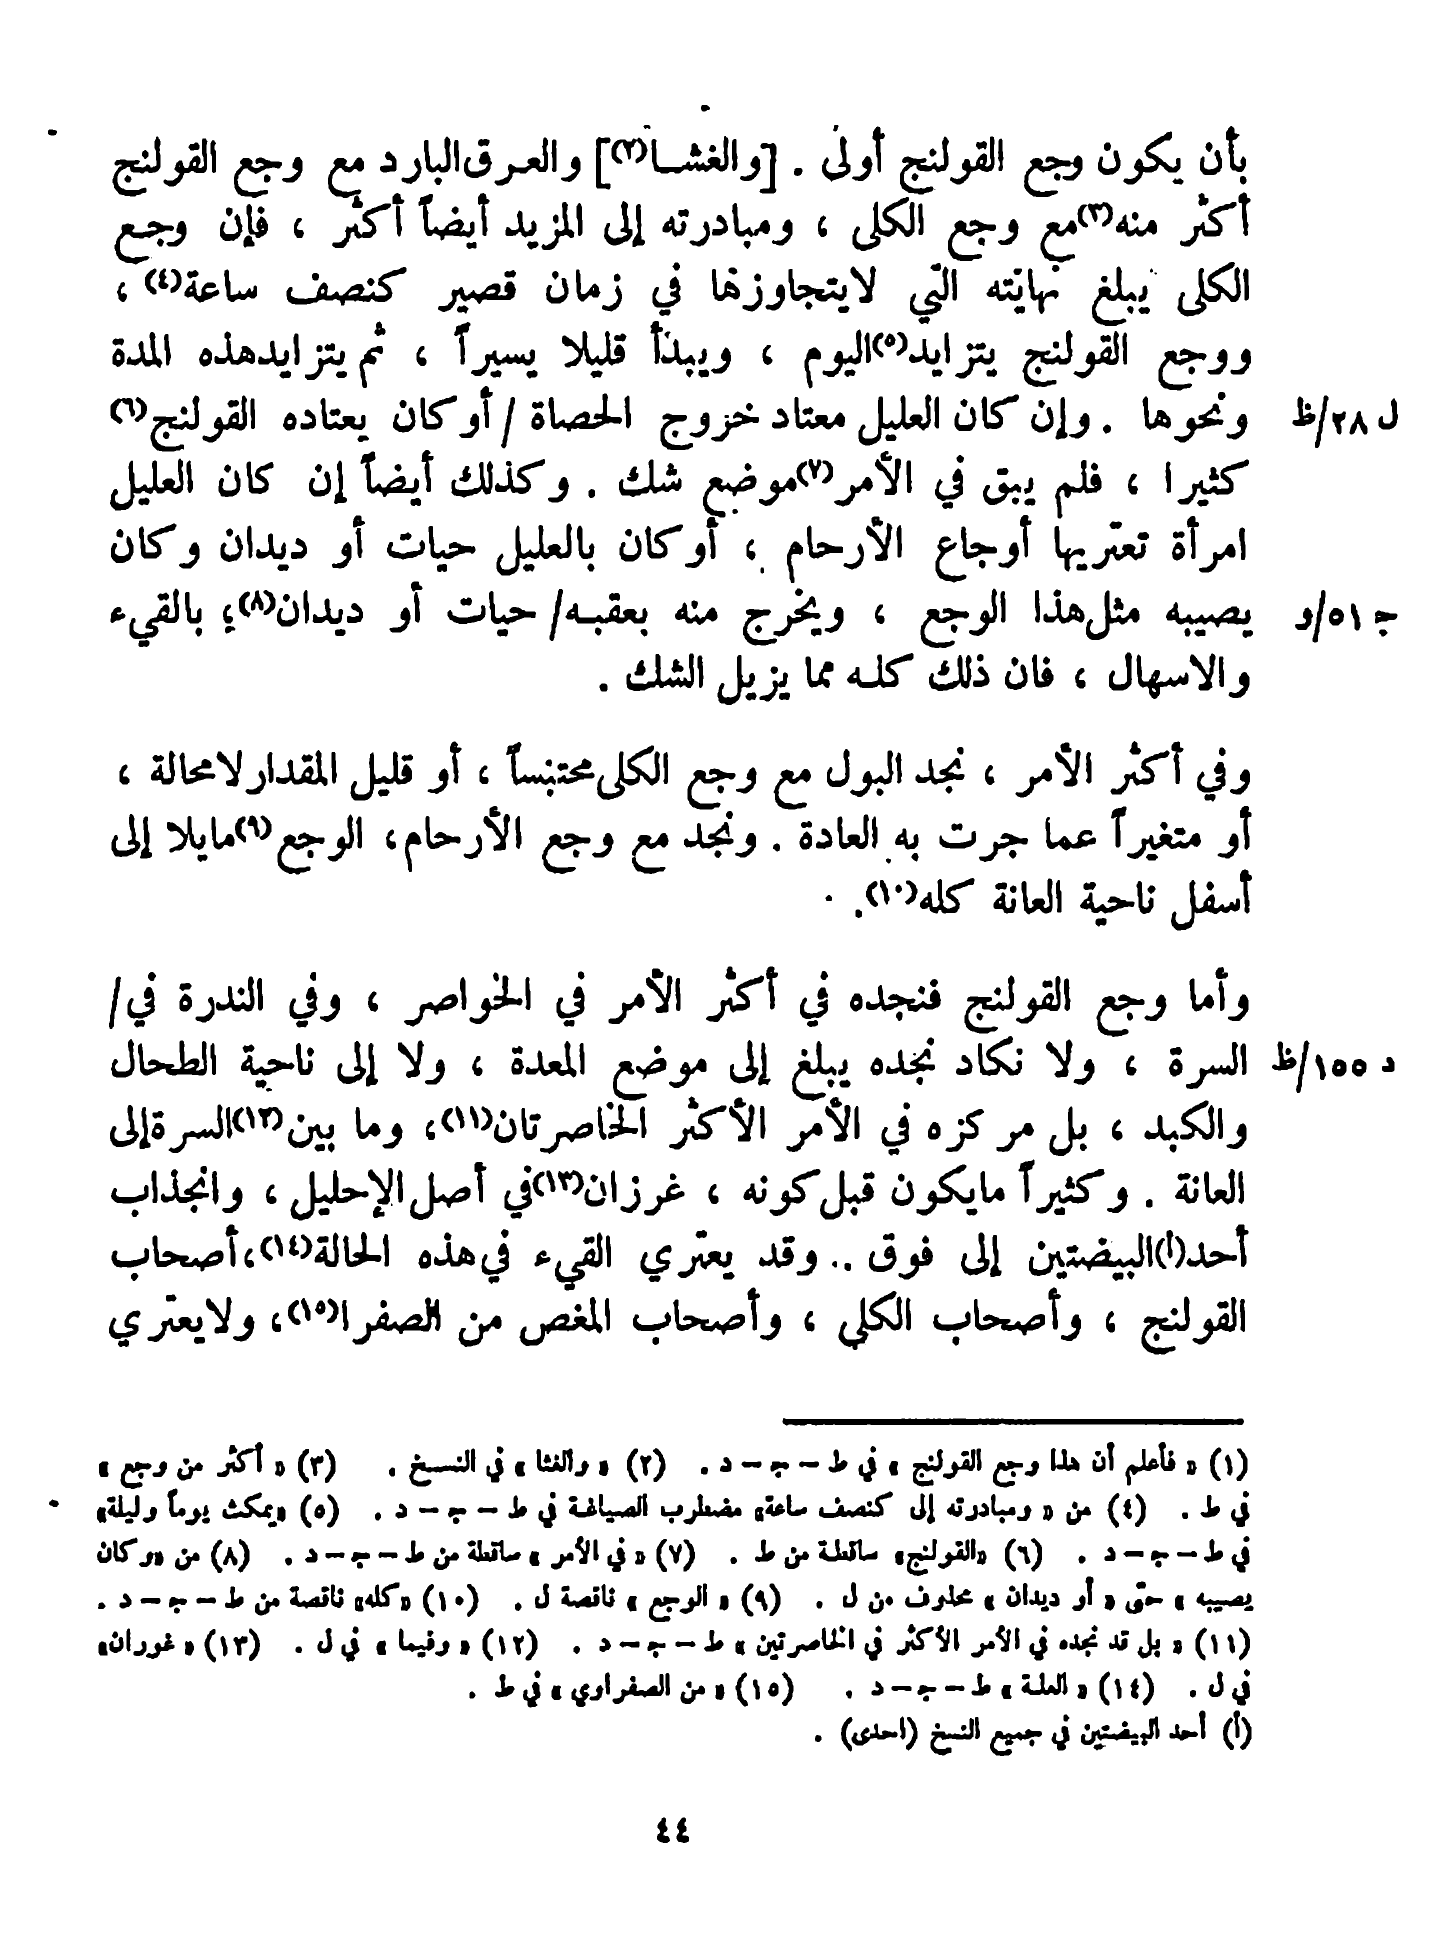 بأن يكون وجع القولنج أولى . [والغشا(٢)] والعرق البارد مع وجع القولنج
أكثر منه(٣) مع وجع الكلى ، ومبادرته إلى المزيد أيضاً أكثر ، فإن وجع
الكلى يبلغ نهايته التي لايتجاوزها في زمان قصير كنصف ساعة(٤) ،
ووجع القولنج يتزايد(٥) اليوم ، ويبدأ قليلا يسيراً ، ثم يتزايد هذه المدة
ل ٢٨/ظ ونحوها . وإن كان العليل معتاد خروج الحصاة / أو كان يعتاده القولنج(٦)
كثيرا ، فلم يبق في الأمر(٧) موضع شك . وكذلك أيضاً إن كان العليل
امرأة تعتريها أوجاع الأرحام ، أو كان بالعليل حيات أو ديدان وكان
ج ٥١/و يصيبه مثل هذا الوجع ، ويخرج منه بعقبه/ حيات أو ديدان(٨)؛ بالقيء
والاسهال ، فان ذلك كله مما يزيل الشك .
وفي أكثر الأمر ، نجد البول مع وجع الكلى محتبساً ، أو قليل المقدار لا محالة ،
أو متغيراً عما جرت به العادة . ونجد مع وجع الأرحام ، الوجع(٩) مايلا إلى
أسفل ناحية العانة كله(١٠).
وأما وجع القولنج فنجده في أكثر الأمر في الخواصر ، وفي الندرة في/
د ١٥٥/ظ السرة ، ولا نكاد نجده يبلغ إلى موضع المعدة ، ولا إلى ناحية الطحال
والكبد ، بل مركزه في الأمر الأكثر الخاصرتان(١١)، وما بين(١٢) السرة إلى
العانة . وكثيراً مايكون قبل كونه ، غرزان(١٣) في أصل الإحليل ، وانجذاب
أحد(أ) البيضتين إلى فوق .. وقد يعتري القيء في هذه الحالة(١٤)، أصحاب
القولنج ، وأصحاب الكلى ، وأصحاب المغص من الصفرا(١٥)، ولايعتري
(١) « فأعلم أن هذا وجع القولنج » في ط – ج – د . (٢) « والغثا » في النسخ . (٣) « أكثر من وجع »
في ط . (٤) من « ومبادرته إلى كنصف ساعة» مضطرب الصياغة في ط – ج – د . (٥) «يمكث يوماً وليلة»
في ط – ج – د . (٦) «القولنج» ساقطة من ط . (٧) « في الأمر » ساقطة من ط – ج – د . (٨) من «وكان
يصيبه » حتى « أو ديدان » محذوف من ل . (٩) « الوجع » ناقصة ل . (١٠) «كله» ناقصة من ط – ج – د .
(١١) « بل قد نجده في الأمر الأكثر في الخاصرتين » ط – ج – د . (١٢) « وفيما » في ل . (١٣) « غوران»
في ل . (١٤) « العلة » ط – ج – د . (١٥) « من الصفراوي » في ط .
(أ) أحد البيضتين في جميع النسخ (احدى) .
٤٤